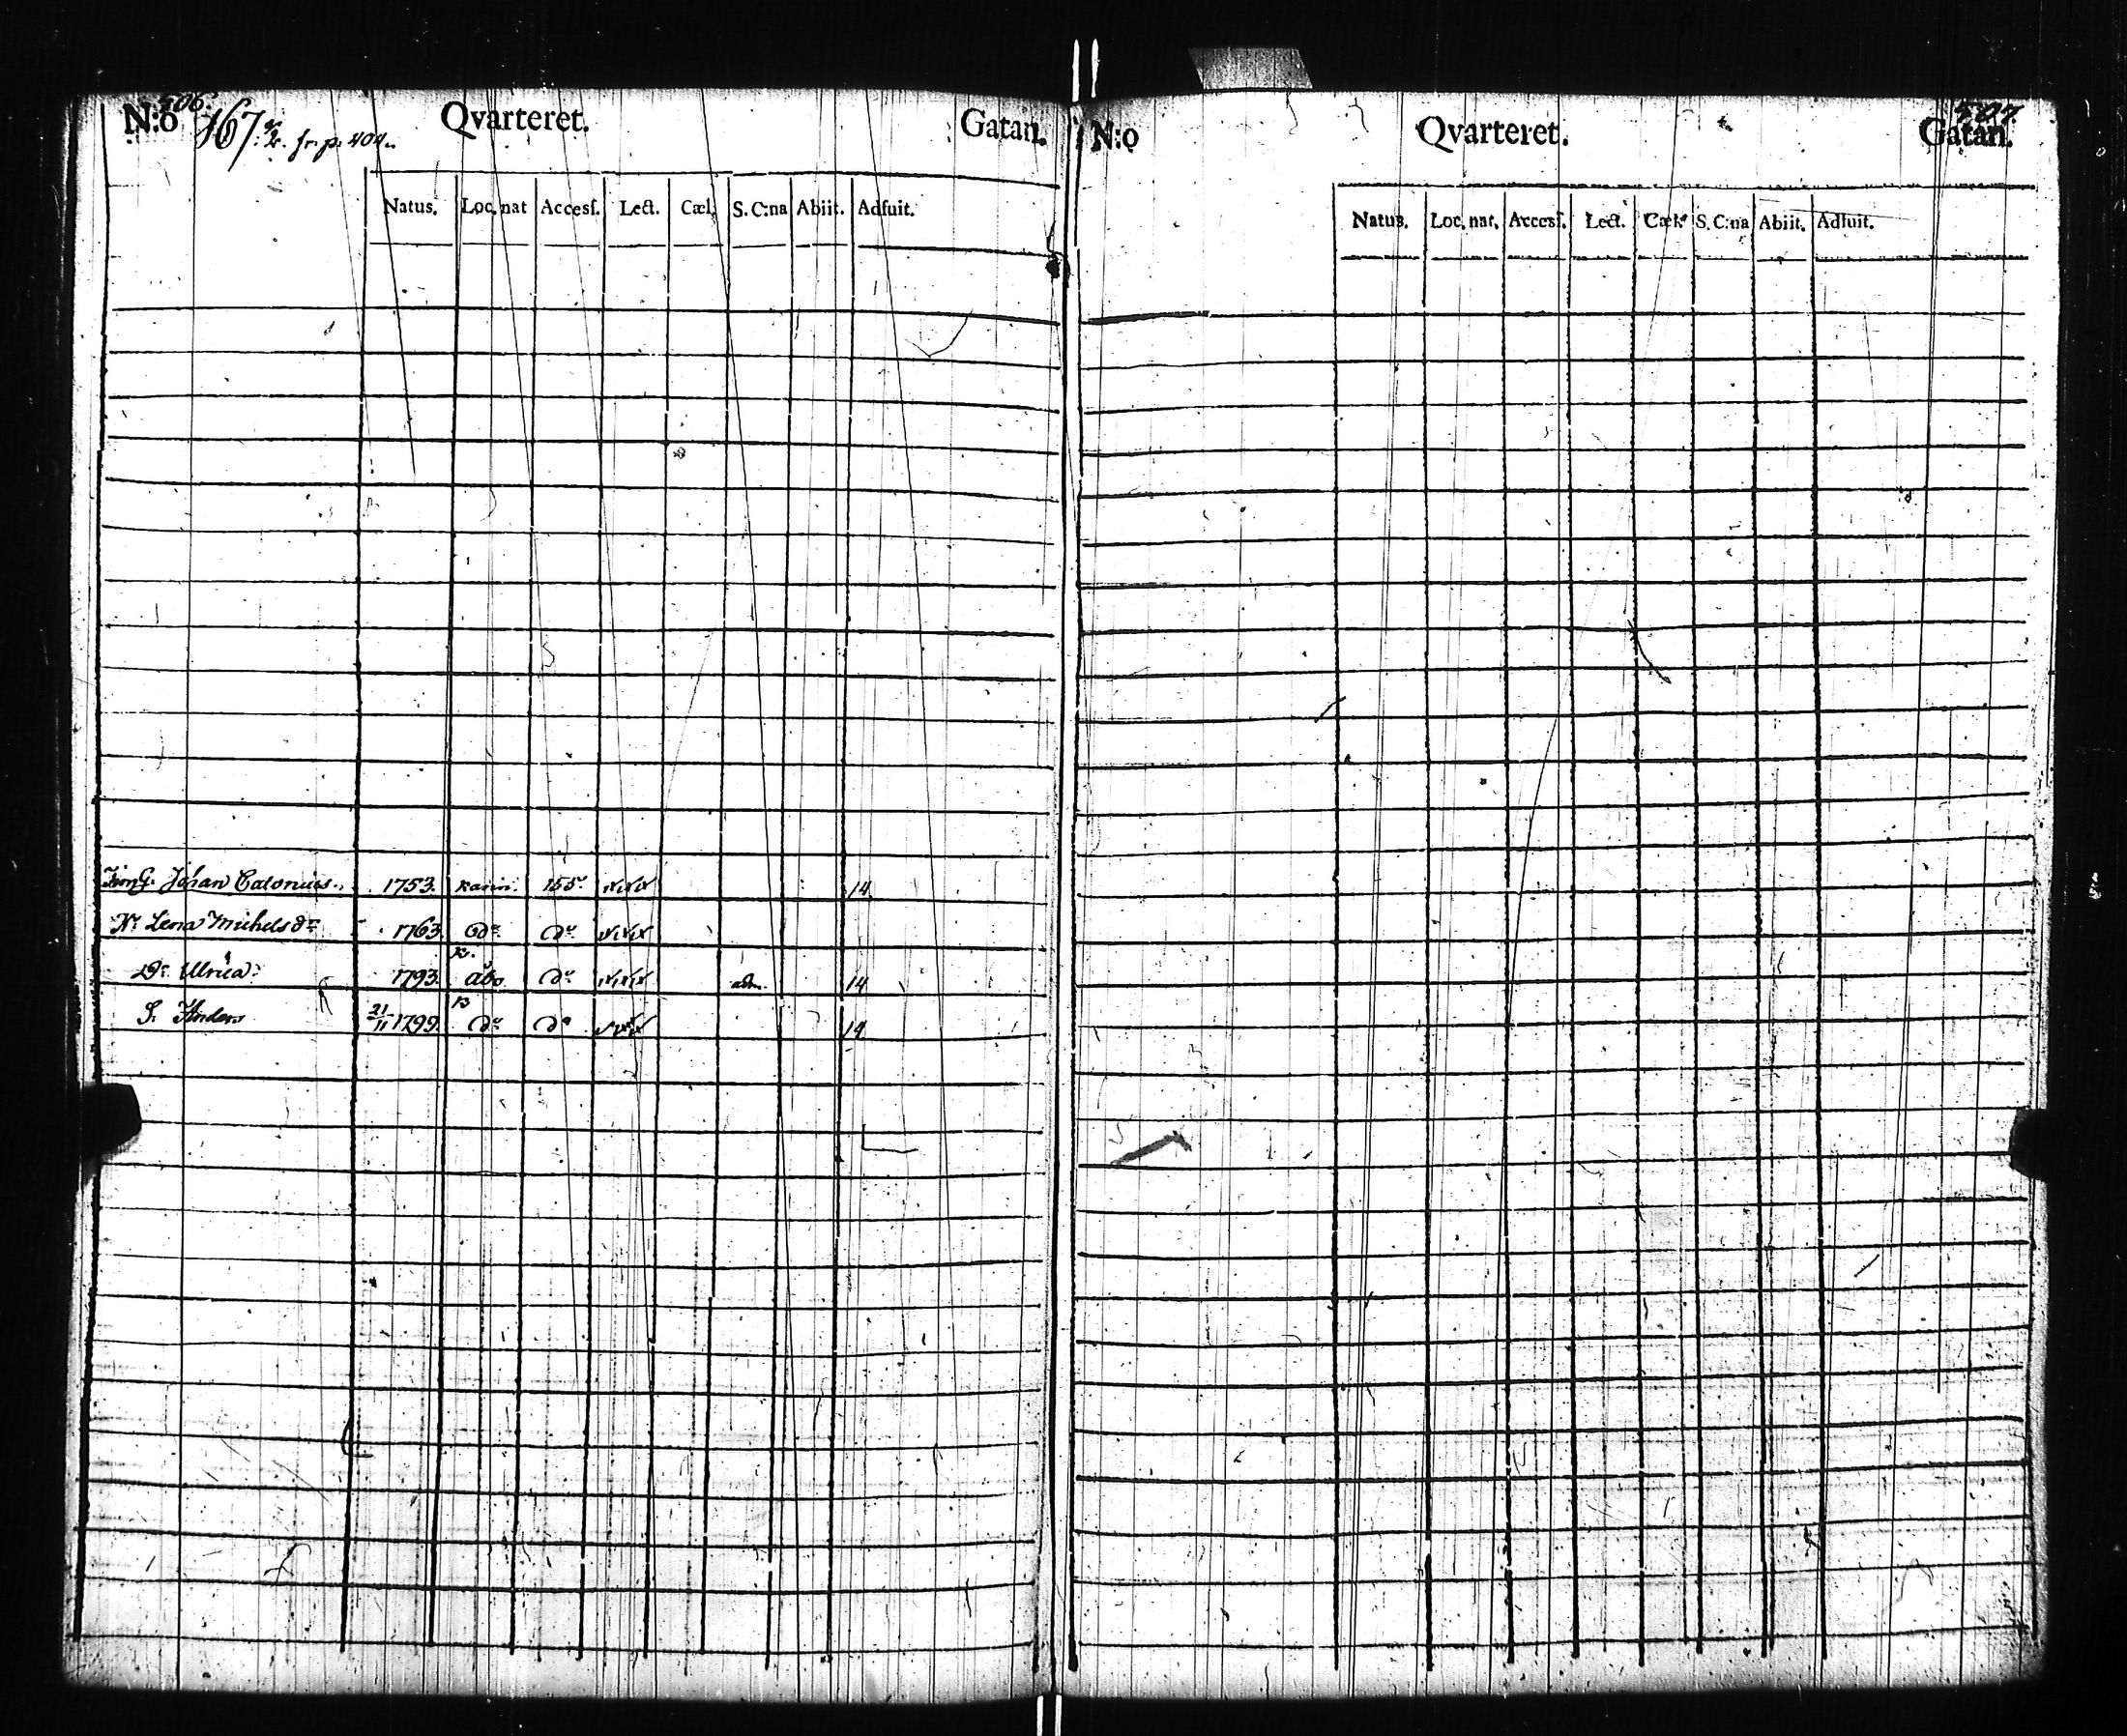 506.
N:o 167. Qvarteret. Gatan.
fr. p. 404.
Natus. Loc. nat Accesſ. Lect. Cæl. S. C:na Abiit. Adfuit.
Johan Calonius. 1753. 155. 14
Hu Lena Michelsdr 1763. do do
Dr Ulrica 1793. Åbo do adm. 14
S. Anders 21/11 1799. do do 14
507
N:o Qvarteret. Gatan.
Natus. Loc. nat. Accesſ. Lect. Cæl. S. C:na Abiit. Adfuit.